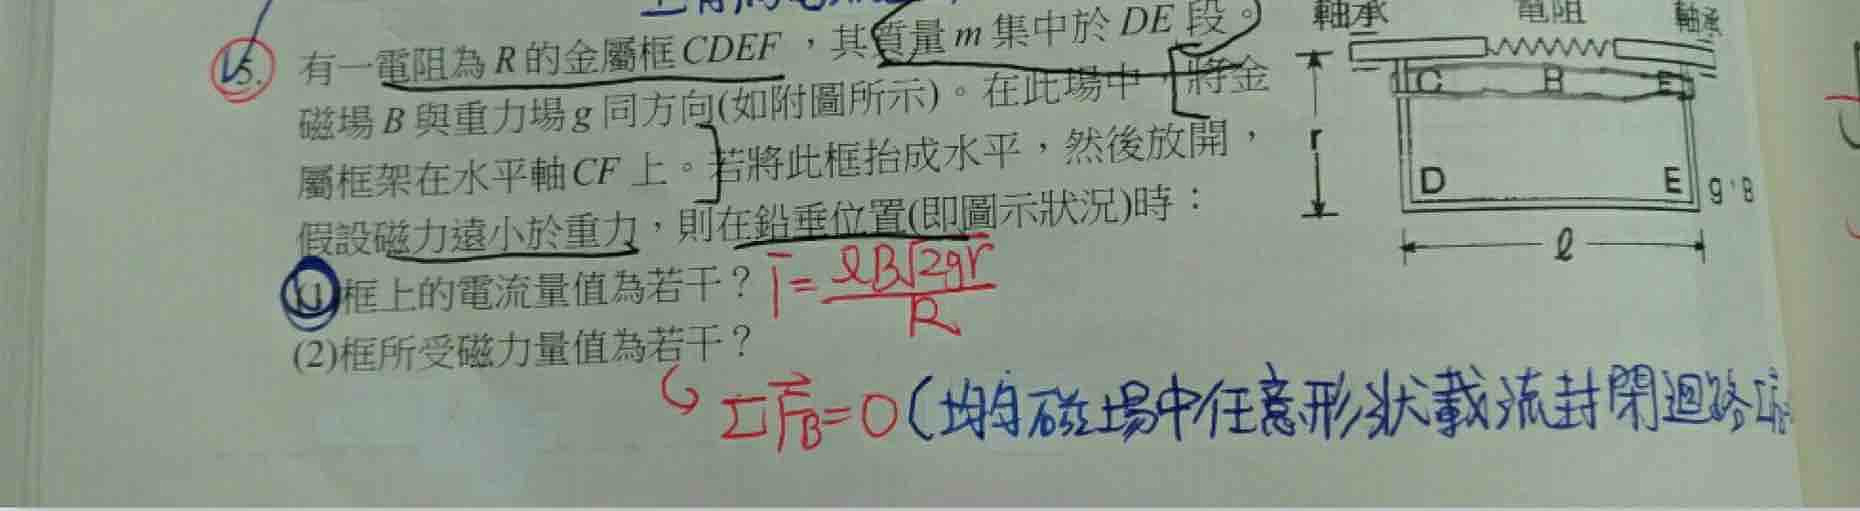 軸承 電阻 軸承
5. 有一電阻為R的金屬框CDEF，其質量m集中於DE段。
磁場B與重力場g同方向(如附圖所示)。在此場中，將金
屬框架在水平軸CF上。若將此框抬成水平，然後放開，
假設磁力遠小於重力，則在鉛垂位置(即圖示狀況)時：
(1)框上的電流量值為若干？ I = ℓB√2gr / R
(2)框所受磁力量值為若干？
ΣF⃗B=0 (均勻磁場中任意形狀載流封閉迴路
C B F
r
D E g,B
ℓ